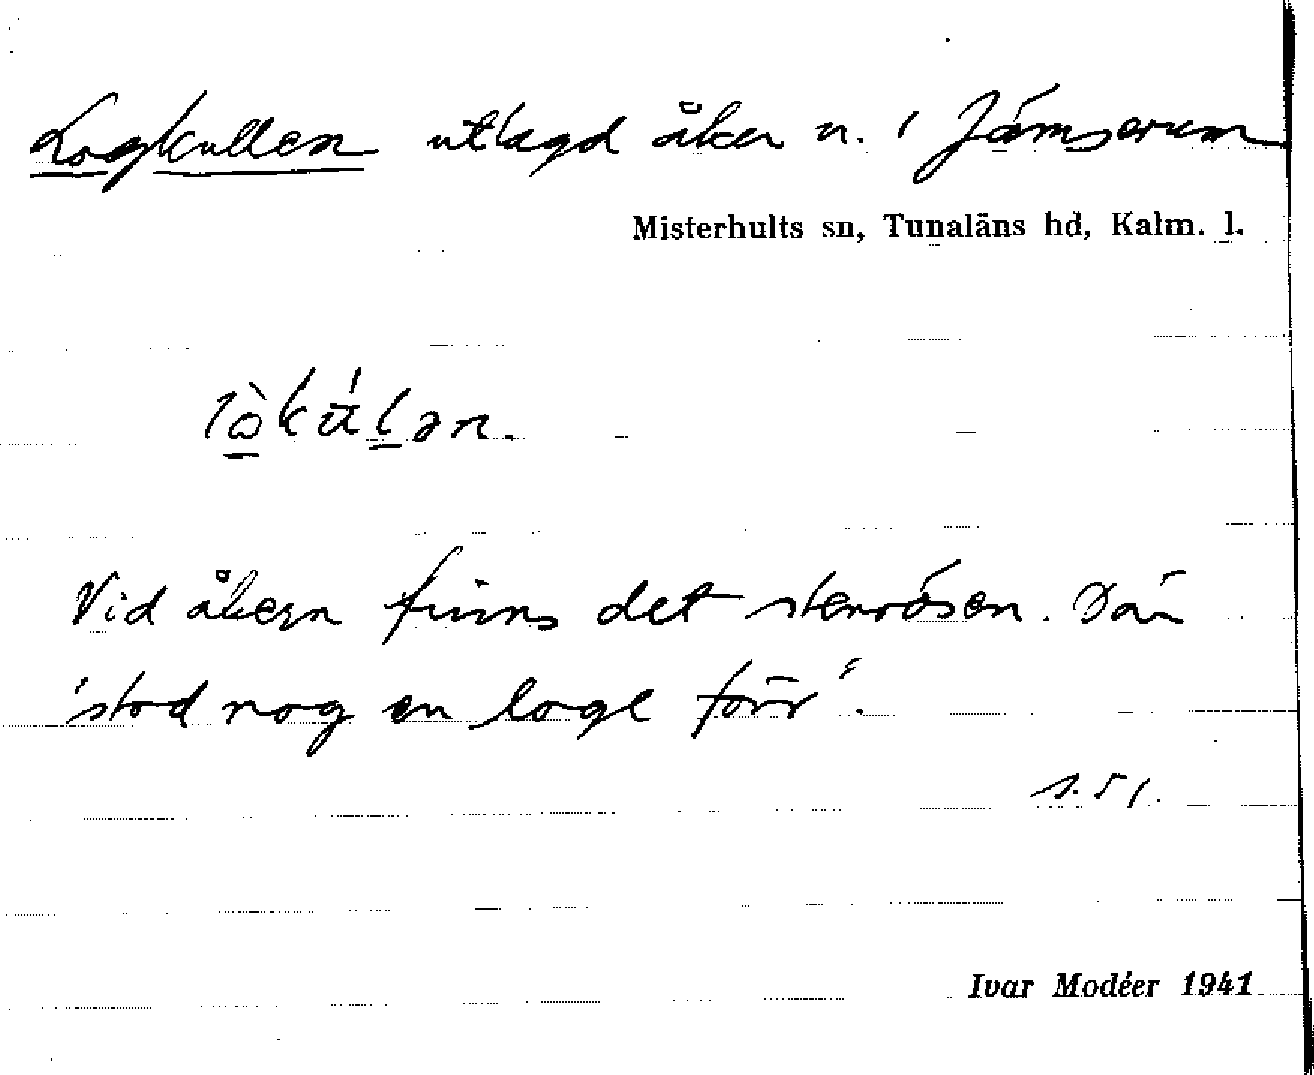 Logkullen utlagd åker n. i Jämserum
Misterhults sn, Tunaläns hd, Kalm. l.
lò̱kúḻən.
Vid åkern finns det stenrösen. Där
"stod nog en loge förr".
s. 51.
Ivar Modéer 1941